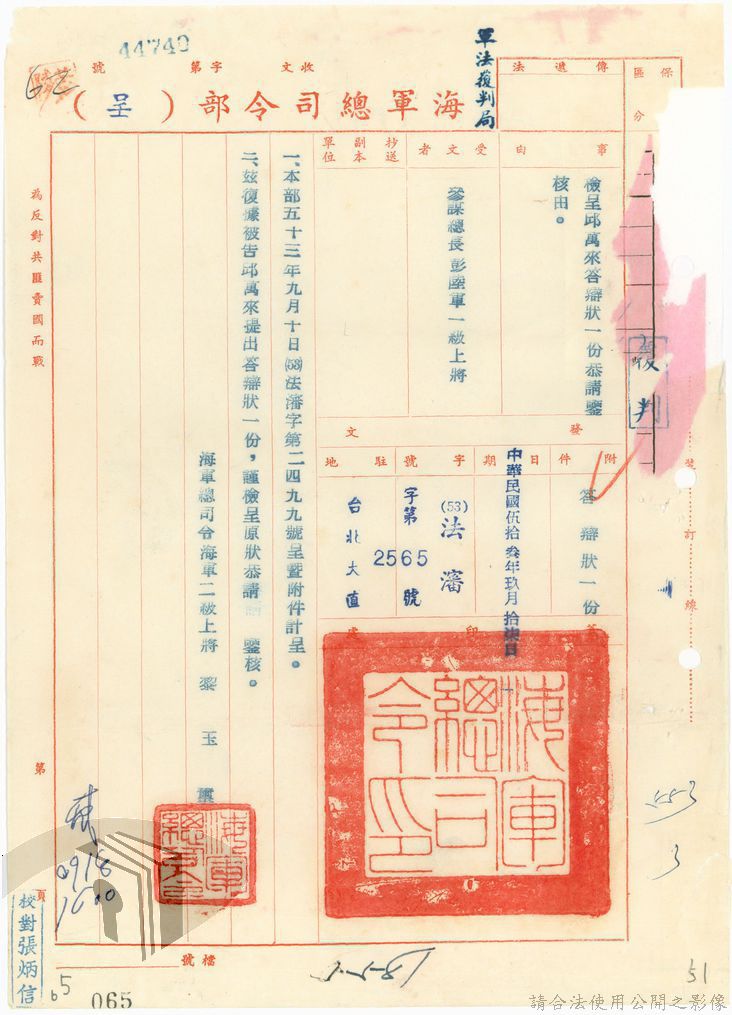 44740
收文 字第 號
海軍總司令部（呈）
軍法復判局
傳遞法
保 區分
事由
檢呈邱萬來答辯狀一份恭請鑒
核由。
受文者
參謀總長彭陸軍一級上將
抄送副本單位
覆判
發文
附件
答辯狀一份
日期
中華民國伍拾叁年玖月拾柒日
字號
(53)法瀋
字第2565號
駐地
台北大直
蓋印處
一、本部五十三年九月十日(53)法瀋字第二四九九號呈暨附件計呈。
二、茲復據被告邱萬來提出答辯狀一份，謹檢呈原狀恭請 鑒核。
海軍總司令海軍二級上將 黎玉璽
海軍總司令印
為反對共匪賣國而戰
裝訂線
第 頁
0918
1600
校對張炳信
檔號
065
65
51
請合法使用公開之影像